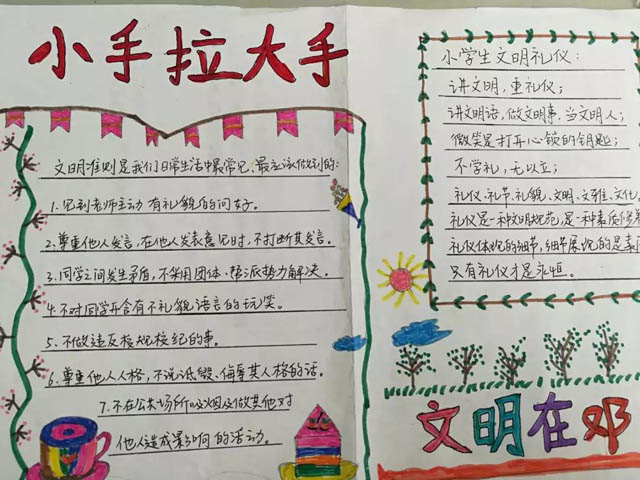 小手拉大手
文明准则是我们日常生活中最常见、最应该做到的:
1. 见到老师主动 有礼貌的问好。
2. 尊重他人发言,在他人发表意见时,不打断其发言。
3. 同学之间发生矛盾,不采用团体、帮派势力解决。
4. 不对同学开含有不礼貌语言的玩笑。
5. 不做违反校规校纪的事。
6. 尊重他人人格,不说诋毁、侮辱其人格的话。
7. 不在公共场所吸烟及做其他对
他人造成影响的活动。
小学生文明礼仪:
讲文明,重礼仪;
讲文明语,做文明事,当文明人;
微笑是打开心锁的钥匙;
不学礼,无以立;
礼仪、礼节、礼貌、文明、文雅、文化
礼仪是一种文明规范,是一种素质修养
礼仪体现的细节,细节展现的是素
只有礼仪才是永恒。
文明在邓